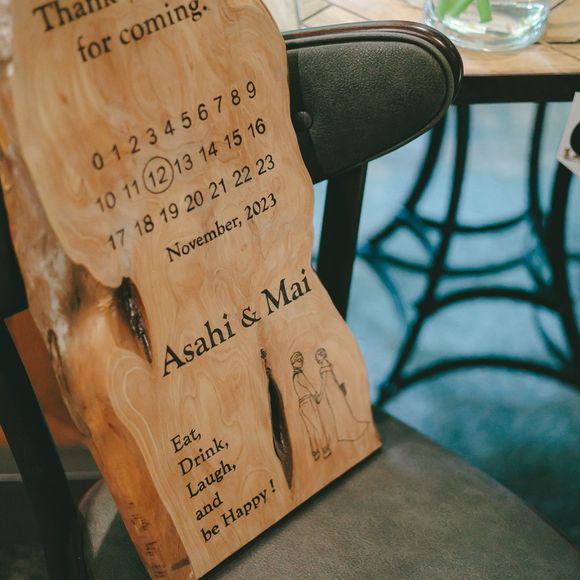 Thank
for coming.
0 1 2 3 4 5 6 7 8 9
10 11 12 13 14 15 16
17 18 19 20 21 22 23
November, 2023
Asahi & Mai
Eat,
Drink,
Laugh,
and
be Happy !